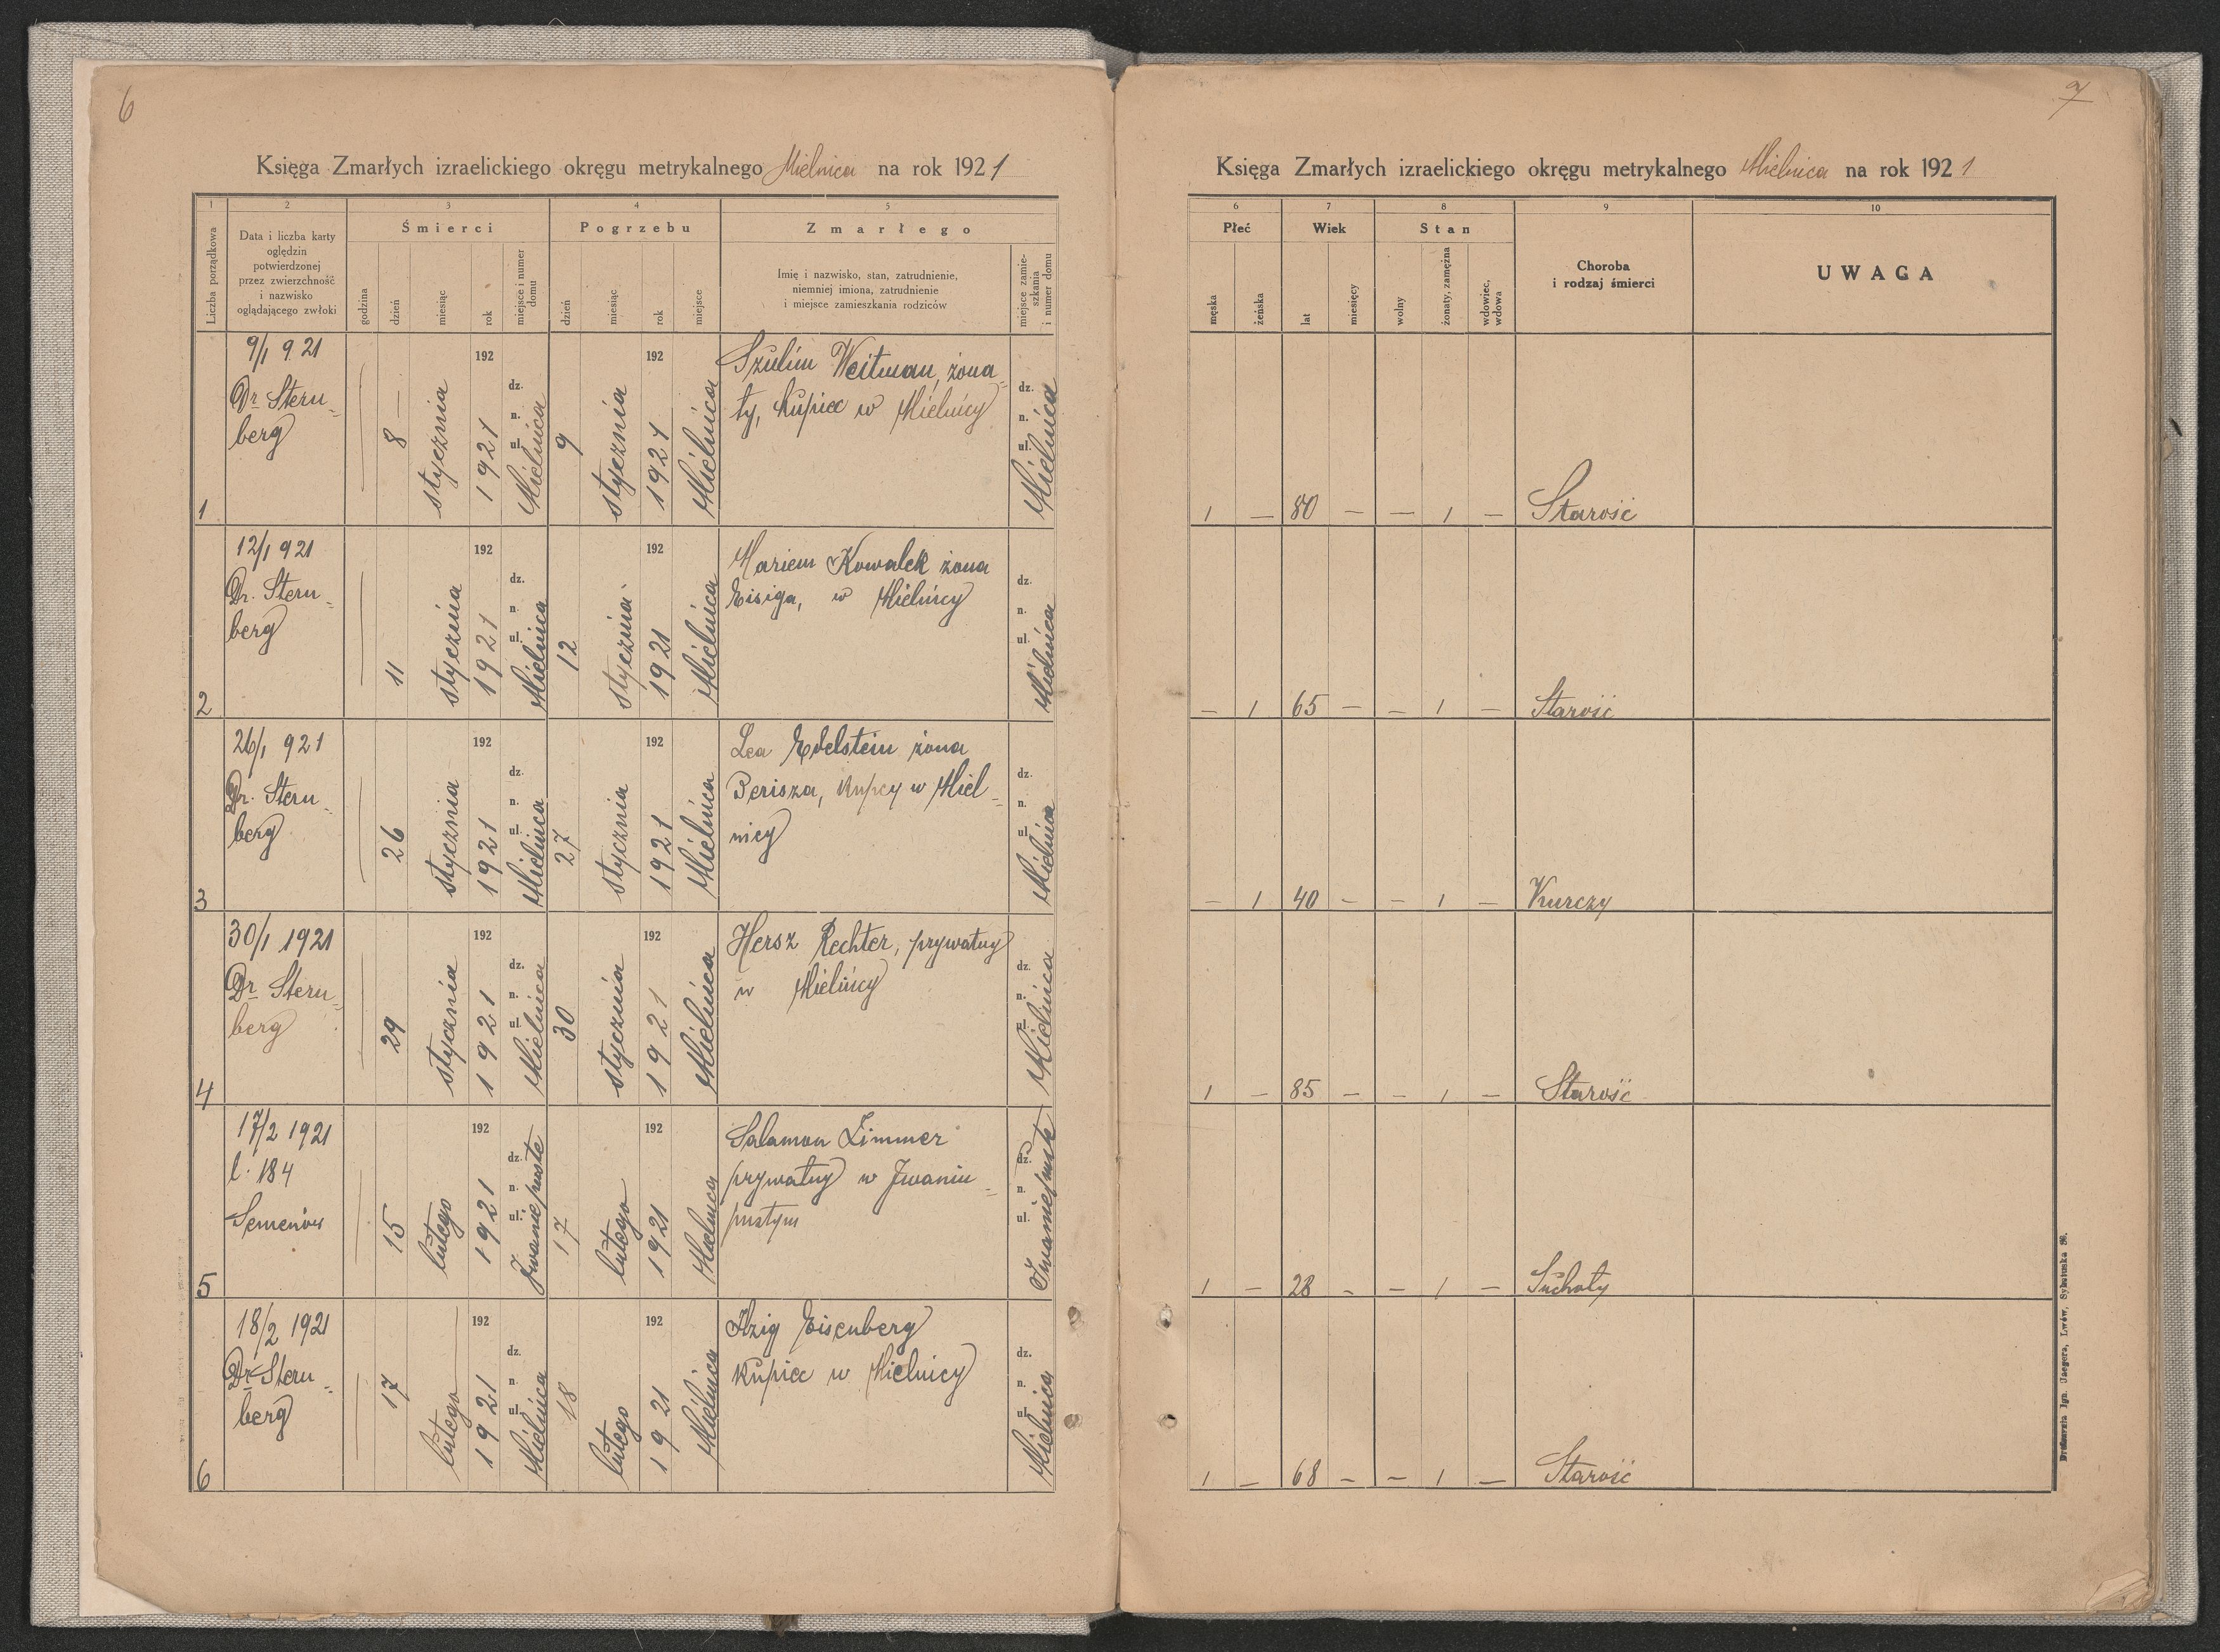 6
Księga Zmarłych izraelickiego okręgu metrykalnego Mielnica na rok 1921
1 2 3 4 5
Liczba porządkowa
Data i liczba karty
oględzin
potwierdzonej
przez zwierzchność
i nazwisko
oglądającego zwłoki
Śmierci
godzina
dzień
miesiąc
rok
miejsce i numer
domu
Pogrzebu
dzień
miesiąc
rok
miejsce
Zmarłego
Imię i nazwisko, stan, zatrudnienie,
niemniej imiona, zatrudnienie
i miejsce zamieszkania rodziców
miejsce zamie-
szkania
i numer domu
1
9/1 921
Dr Stern-
berg
—
8
stycznia
192
1921
dz.
n.
ul.
Mielnica
9
stycznia
192
1921
Mielnica
Szulim Weitman, żona-
ty, kupiec w Mielnicy
dz.
n.
ul.
Mielnica
2
12/1 921
Dr. Stern-
berg
—
11
stycznia
192
1921
dz.
n.
ul.
Mielnica
12
stycznia
192
1921
Mielnica
Mariem Kowalek żona
Eisiga, w Mielnicy
dz.
n.
ul.
Mielnica
3
26/1 921
Dr. Stern-
berg
—
26
stycznia
192
1921
dz.
n.
ul.
Mielnica
27
stycznia
192
1921
Mielnica
Lea Edelstein żona
Berisza, kupcy w Miel-
nicy
dz.
n.
ul.
Mielnica
4
30/1 1921
Dr Stern-
berg
—
29
stycznia
192
1921
dz.
n.
ul.
Mielnica
30
stycznia
192
1921
Mielnica
Hersz Rechter, prywatny
w Mielnicy
dz.
n.
ul.
Mielnica
5
17/2 1921
l. 184
Semenów
—
15
lutego
192
1921
dz.
n.
ul.
Iwanie puste
17
lutego
192
1921
Mielnica
Salamon Zimmer
prywatny w Iwaniu-
pustym
dz.
n.
ul.
Iwanie puste
6
18/2 1921
Dr Stern-
berg
—
17
lutego
192
1921
dz.
n.
ul.
Mielnica
18
lutego
192
1921
Mielnica
Itzig Eisenberg
kupiec w Mielnicy
dz.
n.
ul.
Mielnica
7
Księga Zmarłych izraelickiego okręgu metrykalnego Mielnica na rok 1921
6 7 8 9 10
Płeć
męska
żeńska
Wiek
lat
miesięcy
Stan
wolny
żonaty, zamężna
wdowiec,
wdowa
Choroba
i rodzaj śmierci
UWAGA
1 — 80 — — 1 — Starość
— 1 65 — — 1 — Starość
— 1 40 — — 1 — Kurczy
1 — 85 — — 1 — Starość
1 — 28 — — 1 — Suchoty
1 — 68 — — 1 — Starość
Drukarnia Ign. Jaegera, Lwów, Sykstuska